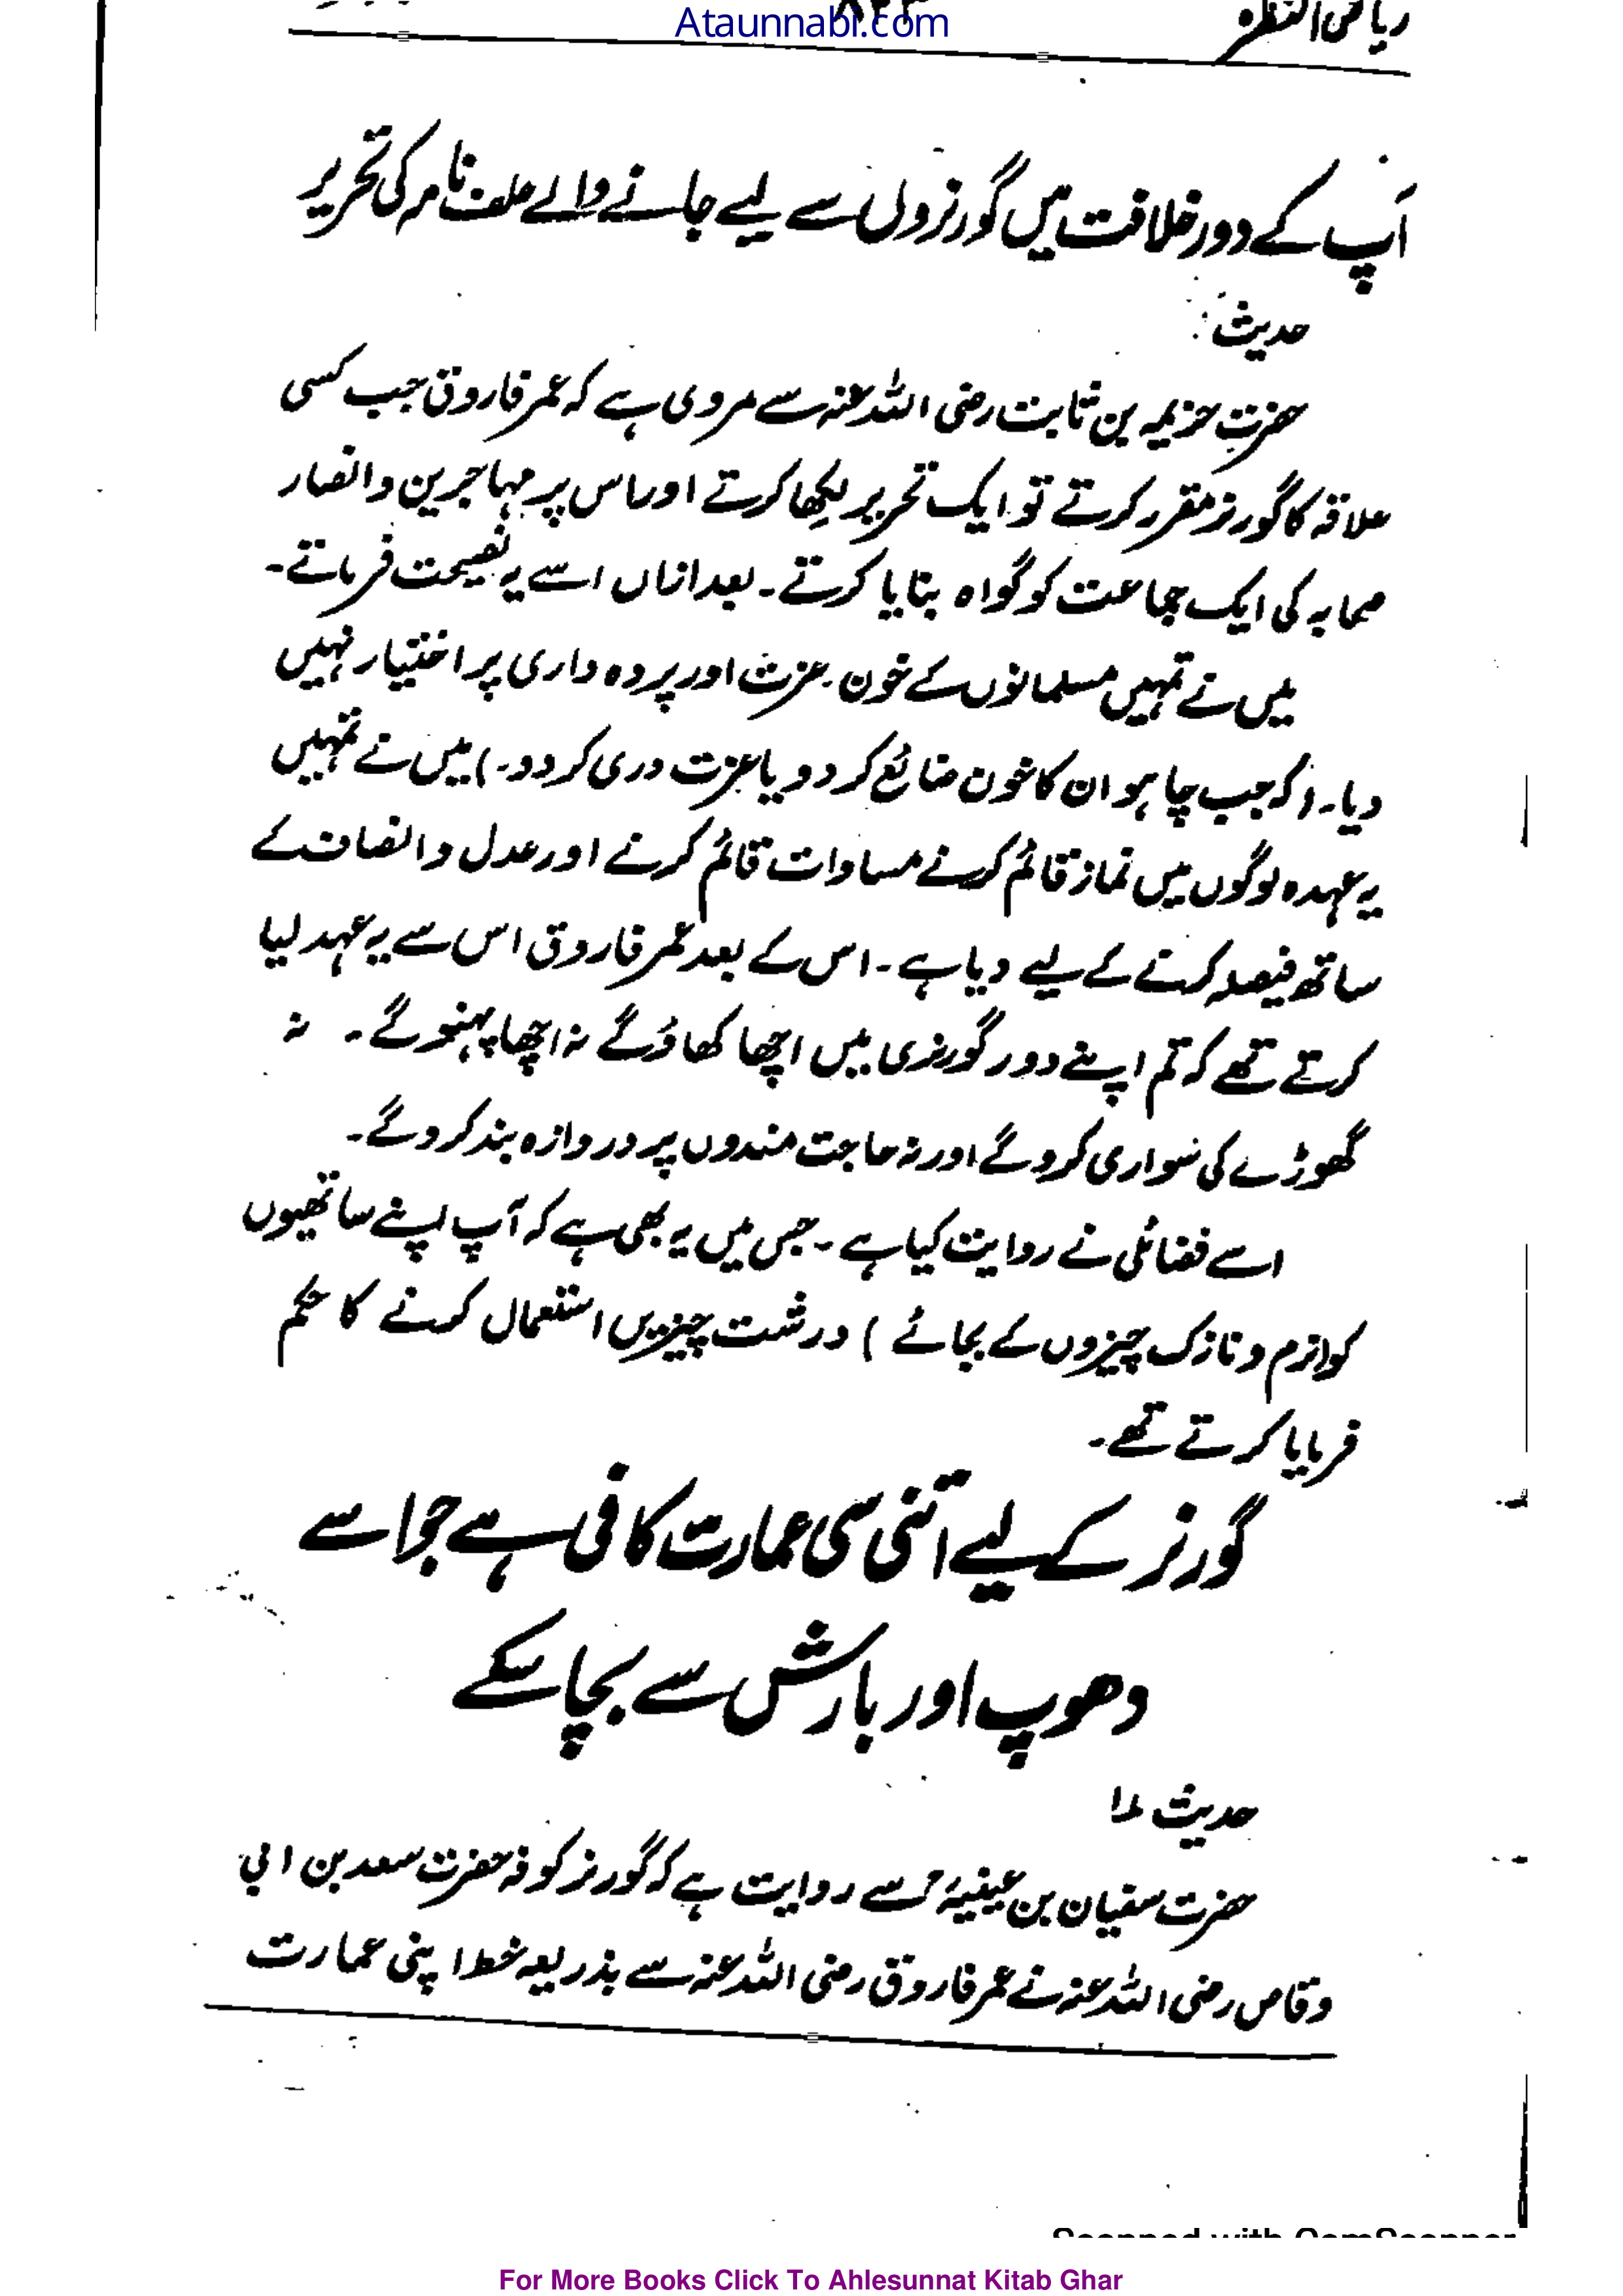 Ataunnabi.com
ریاض النضرہ
آپ کے دور خلافت میں گورنروں سے لیے جانے والے حلف نامہ کی تحریر
حدیث:
حضرت خزیمہ بن ثابت رضی اللہ عنہ سے مروی ہے کہ عمر فاروق جب کسی
علاقہ کا گورنر مقرر کرتے تو ایک تحریر لکھا کرتے اور اس پر مہاجرین و انصار
صحابہ کی ایک جماعت کو گواہ بنایا کرتے۔ بعد ازاں اسے یہ نصیحت فرماتے۔
میں نے تمہیں مسلمانوں کے خون۔ عزت اور پردہ داری پر اختیار نہیں
دیا۔ (کہ جب چاہو ان کا خون ضائع کر دو یا عزت دری کر دو۔) میں نے تمہیں
یہ عہدہ لوگوں میں نماز قائم کرنے مساوات قائم کرنے اور عدل و انصاف کے
ساتھ فیصلہ کرنے کے لیے دیا ہے۔ اس کے بعد عمر فاروق اس سے یہ عہد لیا
کرتے تھے کہ تم اپنے دور گورنری میں اچھا کھاؤ گے نہ اچھا پہنو گے۔ نہ
گھوڑے کی سواری کرو گے اور نہ حاجت مندوں پر دروازہ بند کرو گے۔
اسے فضائلی نے روایت کیا ہے۔ جس میں یہ بھی ہے کہ آپ اپنے ساتھیوں
کو (نرم و نازک چیزوں کے بجائے) درشت چیزیں استعمال کرنے کا حکم
فرمایا کرتے تھے۔
گورنر کے لیے اتنی سی عمارت کافی ہے جو اسے
دھوپ اور بارش سے بچا سکے
حدیث ۱
حضرت سفیان بن عیینہؒ سے روایت ہے کہ گورنر کوفہ حضرت سعد بن ابی
وقاص رضی اللہ عنہ نے عمر فاروق رضی اللہ عنہ سے بذریعہ خط اپنی عمارت
Scanned with CamScanner
For More Books Click To Ahlesunnat Kitab Ghar